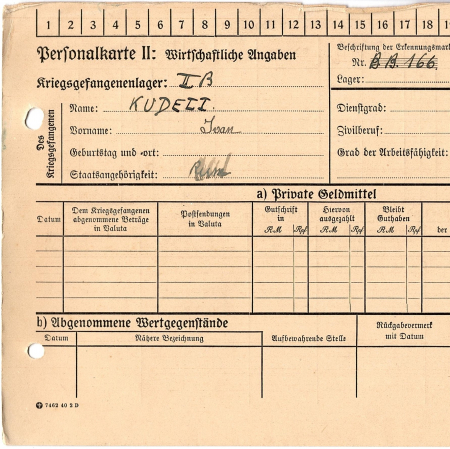 1 2 3 4 5 6 7 8 9 10 11 12 13 14 15 16 17 18 19
Personalkarte II: Wirtschaftliche Angaben
Beschriftung der Erkennungsmark
Nr. B.B. 166.
Kriegsgefangenenlager: II B
Lager:
Des Kriegsgefangenen
Name: KUDEII
Dienstgrad:
Vorname: Ivan
Zivilberuf:
Geburtstag und -ort:
Grad der Arbeitsfähigkeit:
Staatsangehörigkeit:
a) Private Geldmittel
Datum
Dem Kriegsgefangenen abgenommene Beträge in Valuta
Postsendungen in Valuta
Gutschrift in
RM Rpf
Hiervon ausgezahlt
RM Rpf
Bleibt Guthaben
RM Rpf
der
b) Abgenommene Wertgegenstände
Datum
Nähere Bezeichnung
Aufbewahrende Stelle
Rückgabevermerk mit Datum
7462 40 3 D